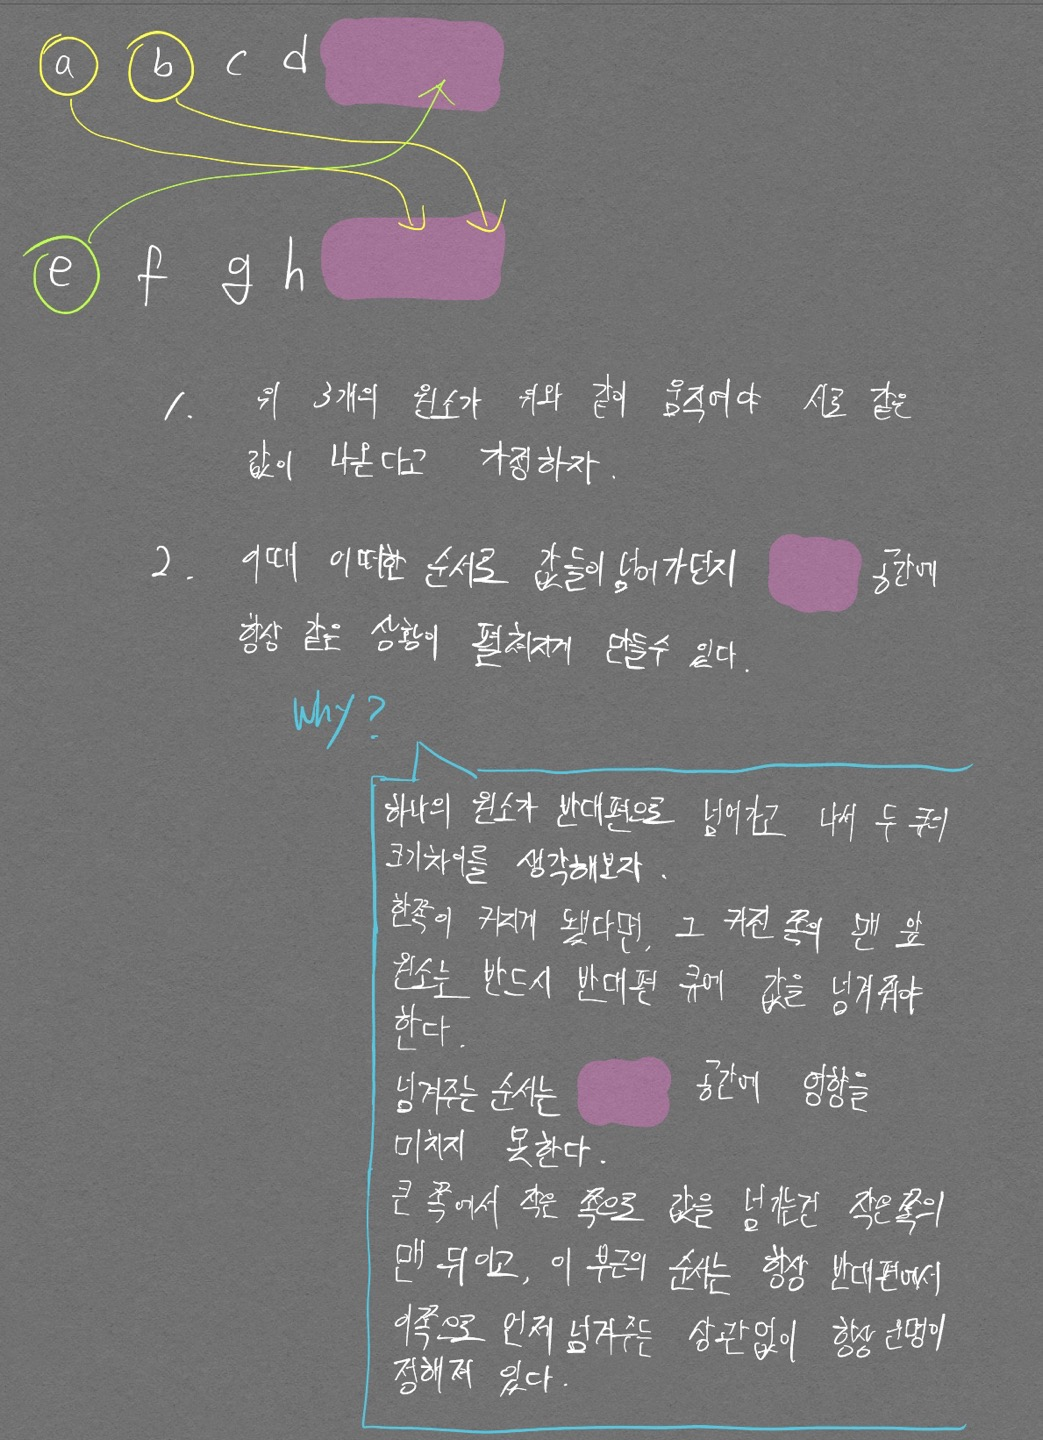 a b c d
e f g h
1. 위 3개의 원소가 위와 같이 움직여야 서로 같은
값이 나온다고 가정하자.
2. 이때 어떠한 순서로 값들이 넘어가던지 공간에
항상 같은 상황이 펼쳐지게 만들수 있다.
Why?
하나의 원소가 반대편으로 넘어가고 나서 두 큐의
크기차이를 생각해보자.
한쪽이 커지게 됐다면, 그 커진 쪽의 맨 앞
원소는 반드시 반대편 큐에 값을 넘겨줘야
한다.
넘겨주는 순서는 공간에 영향을
미치지 못한다.
큰 쪽에서 작은 쪽으로 값을 넘기는건 작은쪽의
맨 뒤이고, 이 부근의 순서는 항상 반대편에서
이쪽으로 언제 넘겨주든 상관없이 항상 운명이
정해져 있다.